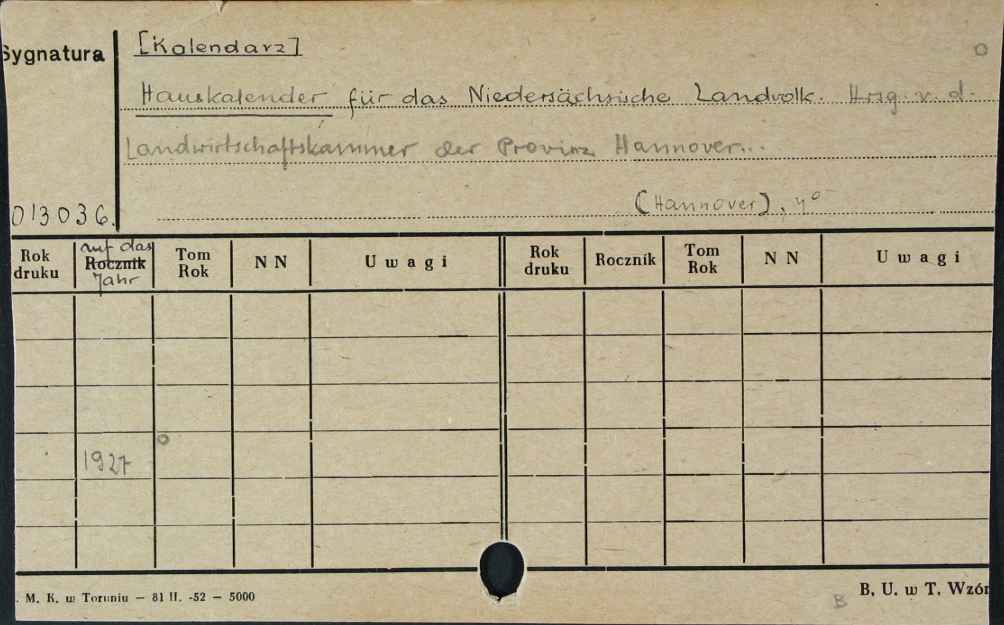 Sygnatura [Kalendarz]
Hauskalender für das Niedersächsische Landvolk. Hrsg. v. d.
Landwirtschaftskammer der Provinz Hannover...
013036. (Hannover), 4°
Rok druku auf das Rocznik Jahr Tom Rok NN Uwagi Rok druku Rocznik Tom Rok NN Uwagi
1927
. M. K. w Toruniu — 81 II. -52 — 5000 B B. U. w T. Wzór